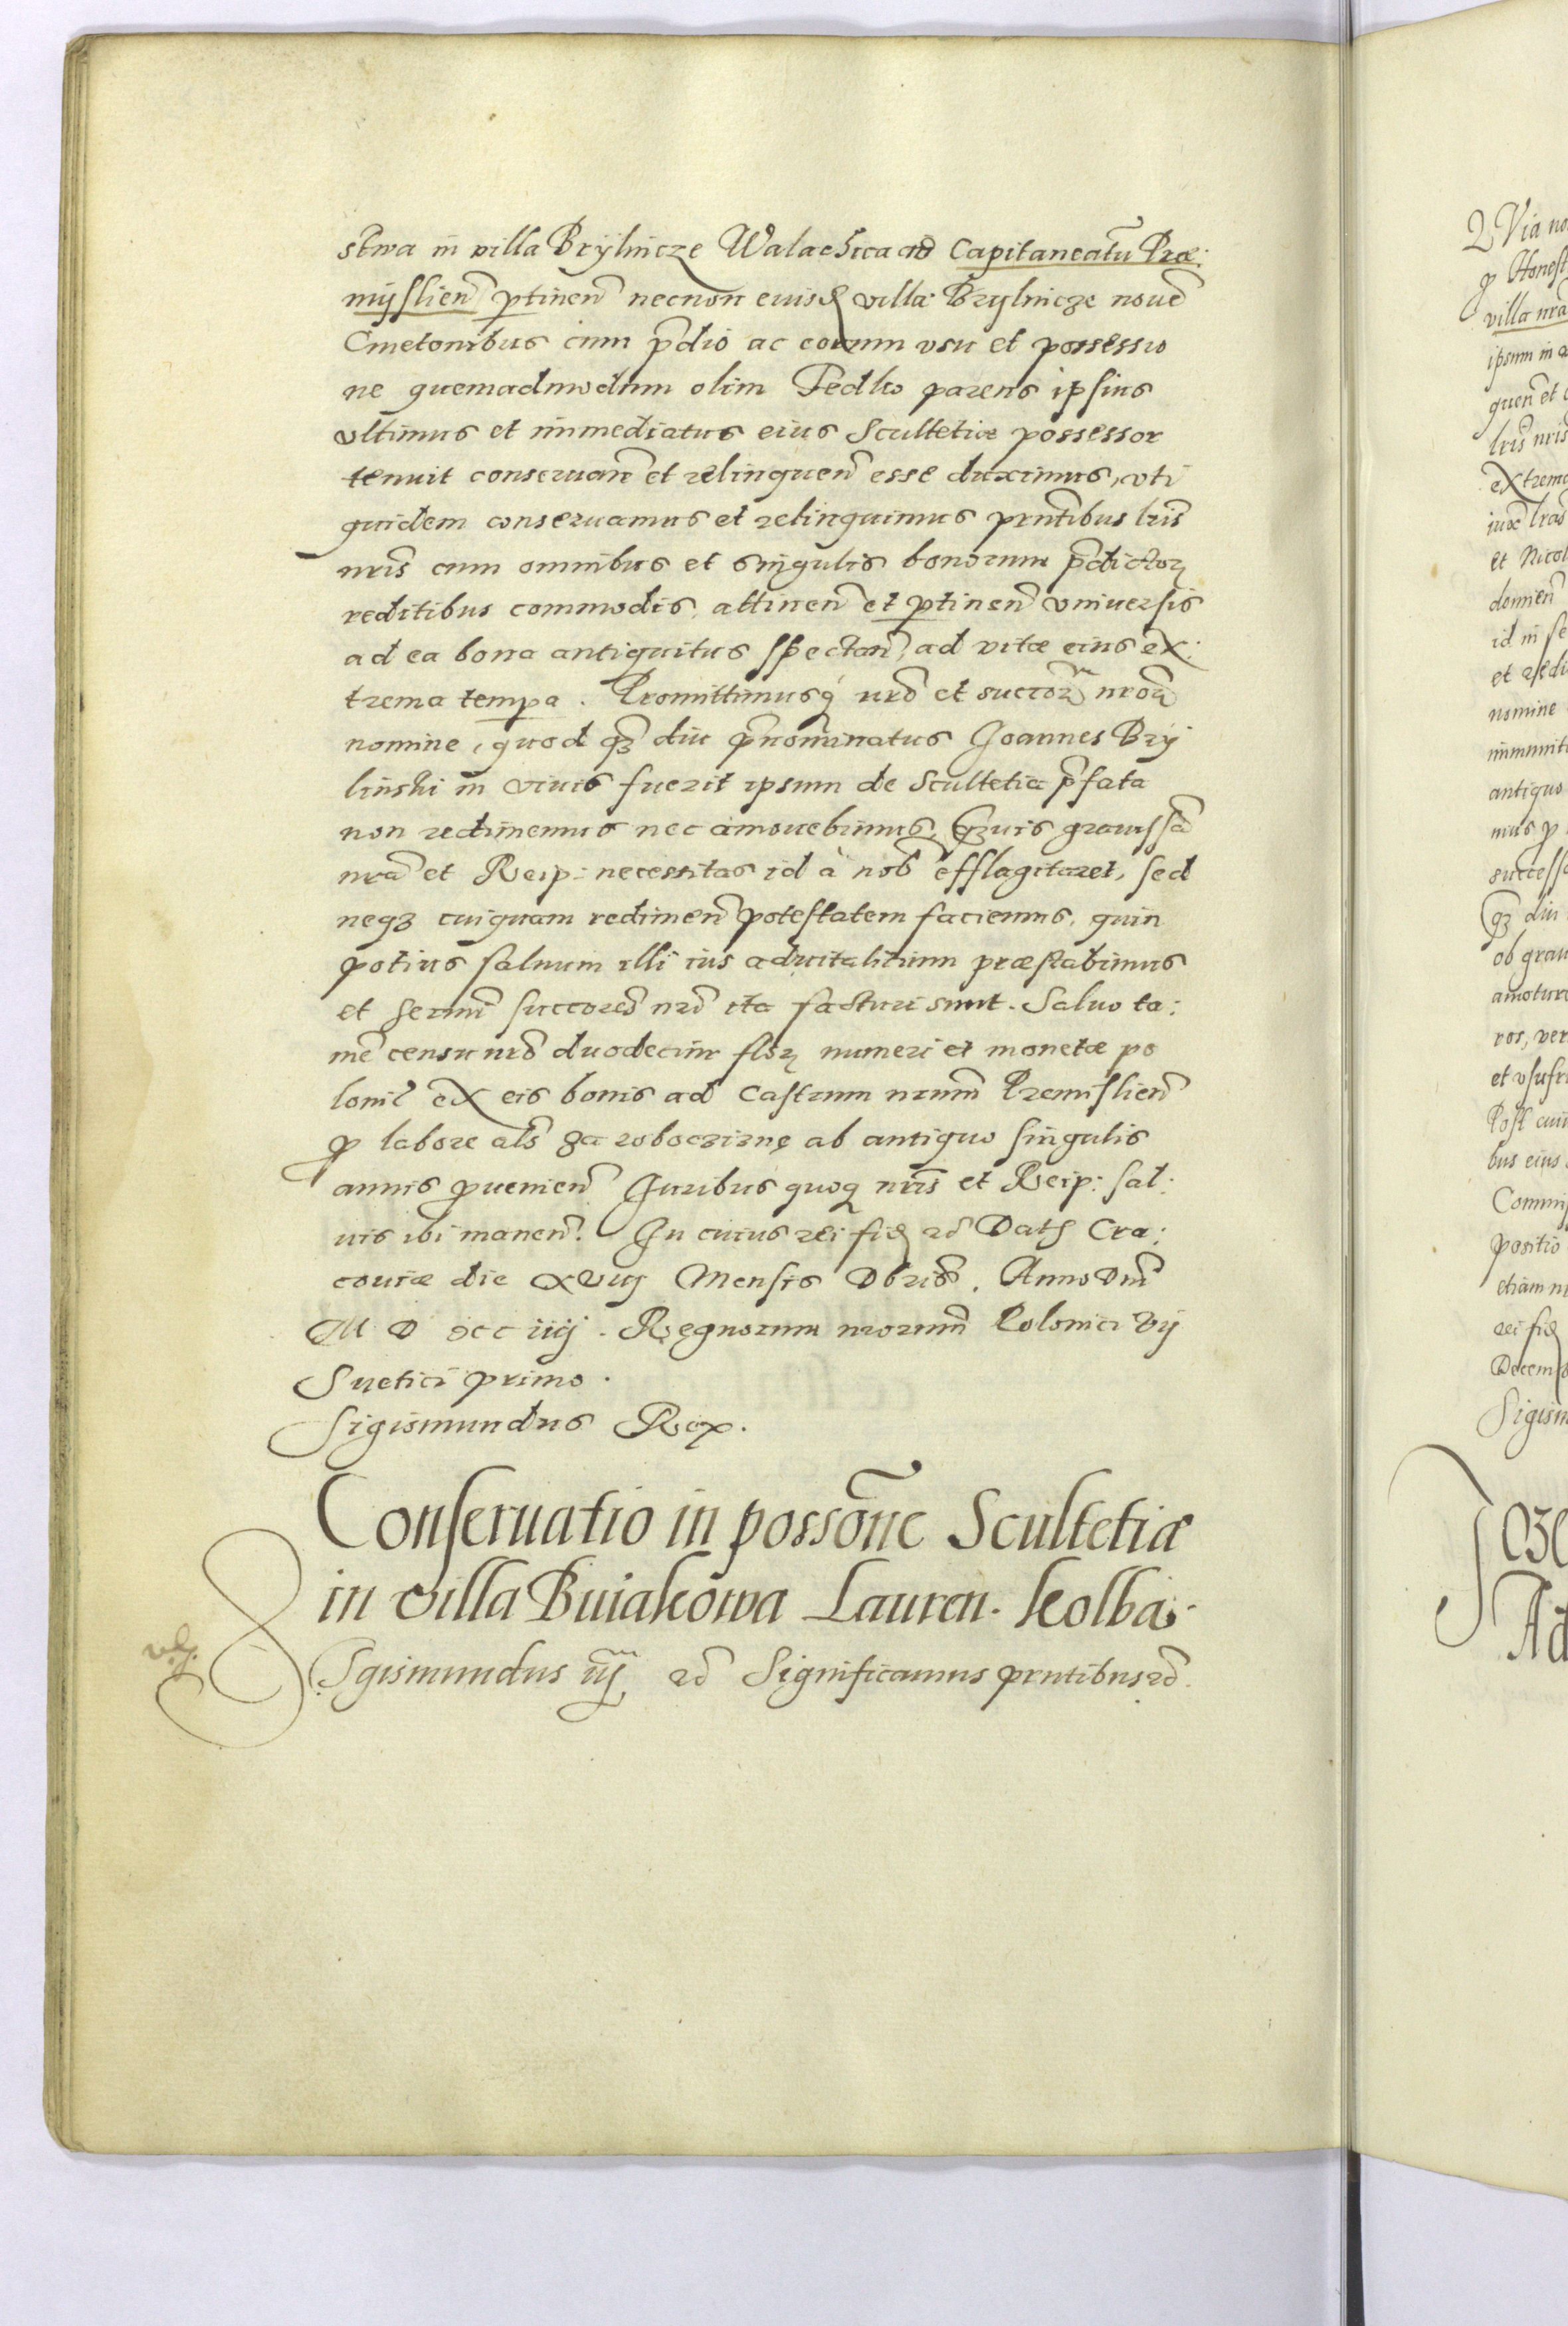 stwa in villa Bryłnicze Walachica ad Capitaneatũ Præ:
mÿslieñ ptineñ necnon euisd villæ Brylnicze nouẽ
Cmetonibus cum p̃dio ac eorum vsu et possessio
ne quemadmodum olim Fedko parens ipsius
vltimus et immediatus eius Scultetiæ possessor
tenuit conseruañ et relinqueñ esse duximus, vti
quidem conseruamus et relinquimus pñtibus lr̃is
nr̃is cum omnibus et singulis bonorum p̃dictorꝝ
reditibus commodis, attineñ et ptineñ vniuersis
ad ea bona antiquitus spectañ, ad vitæ eius ex:
trema tempa. Promittimusq́ nr̃o et succor̃ nr̃orũ
nomine, quod qȝ diu p̃nominatus Joannes Brÿ
linski in viuis fuerit ipsum de Scultetia p̃fata
non redimemus nec amouebimus, qȝuis grauissã
nr̃a et Reip: necessitas id à nob̃ efflagitaret, sed
neqȝ cuiquam redimeñ potestatem faciemus, quin
potius saluum illi ius aduitalitium præstabimus
et serm̃i succores̃ nr̃i ita facturi sunt. Saluo ta:
mẽ censu nr̃o duodecim florꝝ numeri et monetæ po
lonić ex eis bonis ad Castrum nr̃um Premislieñ
ꝓ labore als̃ za robocziznę ab antiquo singulis
annis ꝓuenieñ Juribus quoq nr̃is et Reip: sal:
uis ibi maneñ. In cuius rei fid ꝛc̃ Datꝭ Cra:
couiæ die xviij Mensis Xbris̃. Anno Dñi
M D xcc iiij. Regnorum nrorum̃ Polonici vij
Suetici primo.
Sigismundus Rex.
Conseruatio in possõne Scultetiæ
in villa Buiakowa Lauren. Kolba.
Sgismundus iij ꝛc̃ Significamus prntibus ꝛc̃